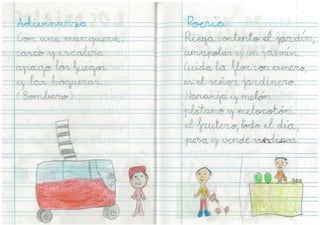 Adivinanza
Con una manguera,
casco y escalera
apago los fuegos
y las hogueras.
(Bombero)
Poesía
Riega contento el jardín,
amapolas y un jazmín.
Cuida la flor con esmero,
es el señor jardinero.
Naranja y melón,
plátano y melocotón.
el frutero, todo el día,
pesa y vende